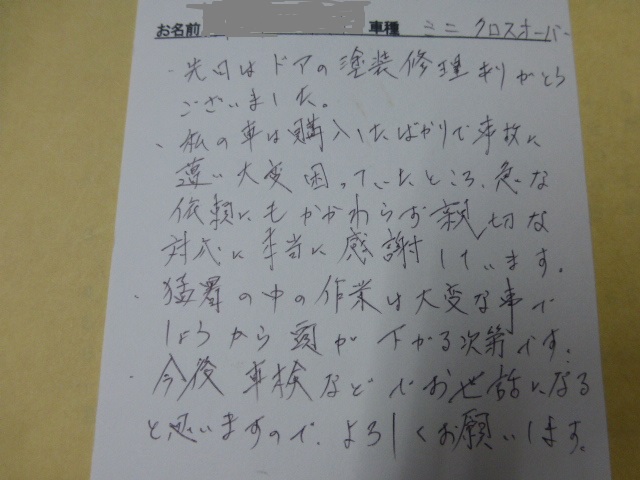 お名前 車種 ミニ クロスオーバー
・先日はドアの塗装修理ありがとう
ございました。
・私の車は購入したばかりで事故に
遭い大変困っていたところ、急な
依頼にもかかわらず親切な
対応に本当に感謝しています。
・猛暑の中の作業は大変な事で
しょうから頭が下がる次第です。
・今後車検などでお世話になる
と思いますので、よろしくお願いします。